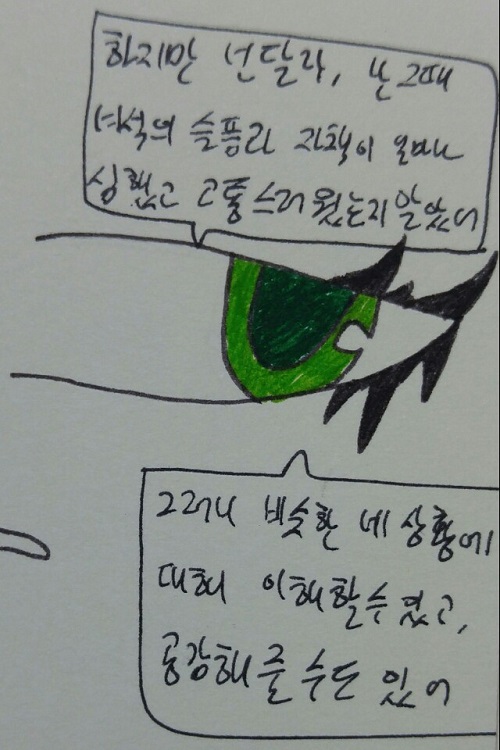 하지만 넌달라, 난 그때
녀석의 슬픔과 자책이 얼마나
심했고 고통스러웠는지 알았어
그러니 비슷한 네 상황에
대해 이해할수 있고,
공감해 줄 수도 있어